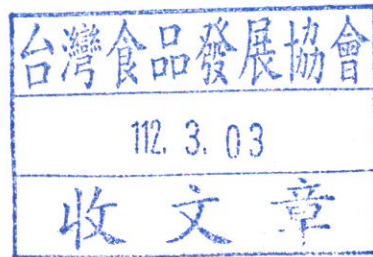 台灣食品發展協會
112. 3. 03
收文章